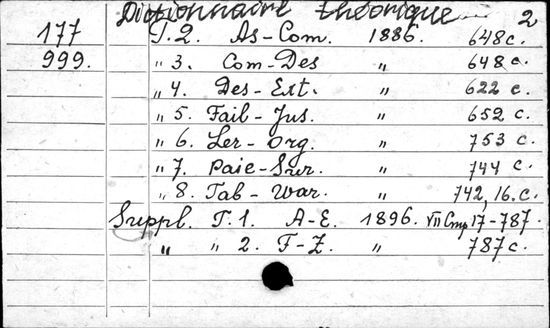 Dictionnaire théorique 2
177 T. 2. As-Com. 1886. 648 c.
999. „ 3. Com-Des „ 648 c.
„ 4. Des-Ext. „ 622 c.
„ 5. Fail-Jus. „ 652 c.
„ 6. Ler-Org. „ 753 c.
„ 7. Paie-Sur. „ 744 c.
„ 8. Tab-War. „ 742, 16. c.
Suppl. T. 1. A-E. 1896. VII Cmp 17-787.
„ „ 2. F-Z. „ 787 c.